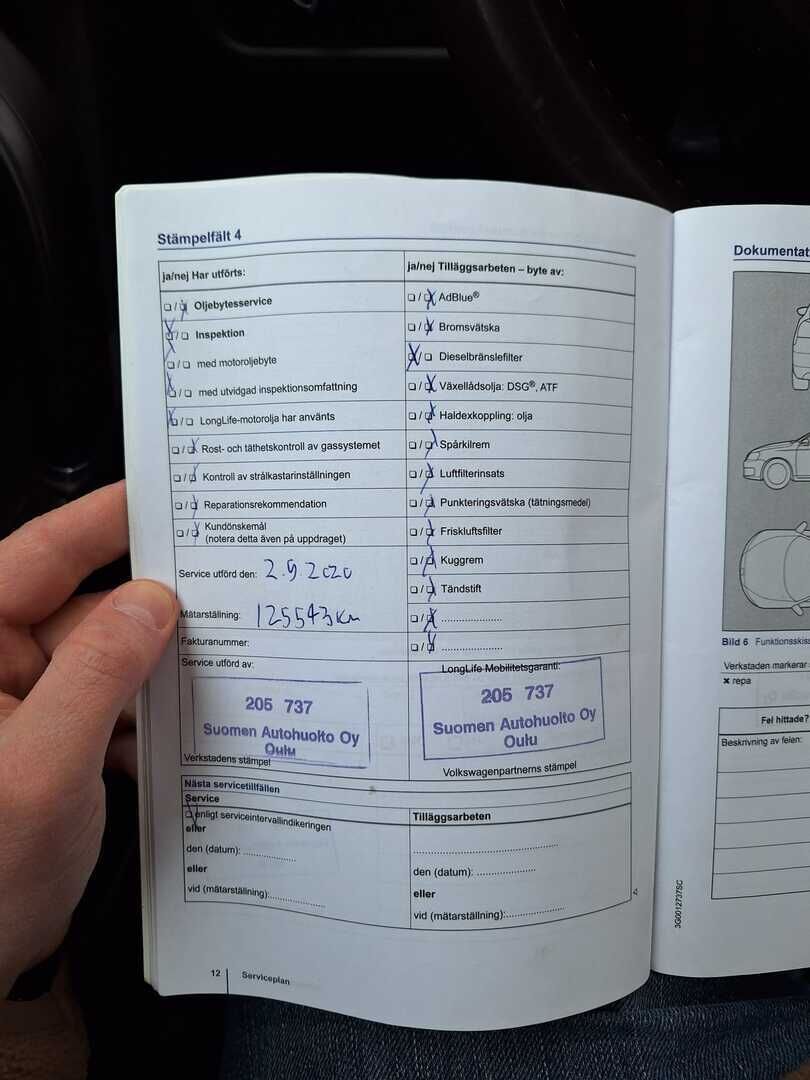 Stämpelfält 4
ja/nej Har utförts:
Oljebytesservice
Inspektion
med motoroljebyte
med utvidgad inspektionsomfattning
LongLife-motorolja har använts
Rost- och täthetskontroll av gassystemet
Kontroll av strålkastarinställningen
Reparationsrekommendation
Kundönskemål
(notera detta även på uppdraget)
Service utförd den: 2.9.2020
Mätarställning: 125543 km
Fakturanummer:
Service utförd av:
205 737
Suomen Autohuolto Oy
Oulu
Verkstadens stämpel
ja/nej Tilläggsarbeten – byte av:
AdBlue®
Bromsvätska
Dieselbränslefilter
Växellådsolja: DSG®, ATF
Haldexkoppling: olja
Spårkilrem
Luftfilterinsats
Punkteringsvätska (tätningsmedel)
Friskluftsfilter
Kuggrem
Tändstift
.....................
.....................
LongLife Mobilitetsgaranti:
205 737
Suomen Autohuolto Oy
Oulu
Volkswagenpartnerns stämpel
Nästa servicetillfällen
Service
enligt serviceintervallindikeringen
eller
den (datum): ..................
eller
vid (mätarställning):..................
Tilläggsarbeten
..................................................
den (datum): ....................
eller
vid (mätarställning):....................
12 Serviceplan
3G0012737SC
Bild 6 Funktionsskiss
Verkstaden markerar
× repa
Fel hittade?
Beskrivning av felen: